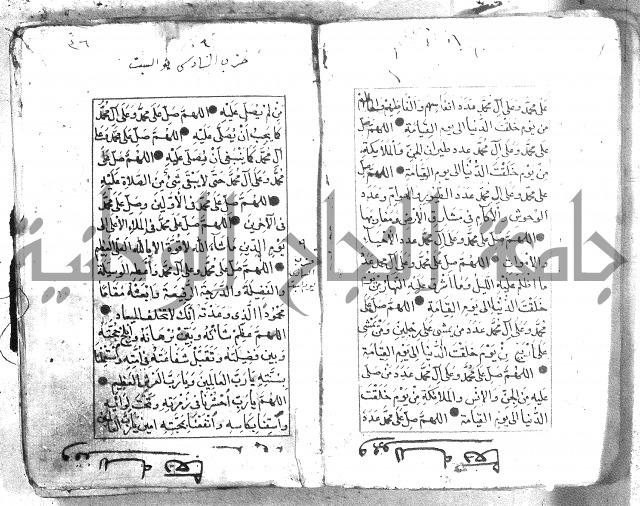 على محمد وعلى آل محمد عدد
من يوم خلقت الدنيا الى يوم القيامة اللهم صل
على محمد وعلى آل محمد عدد طيران الجن والملائكة
من يوم خلقت الدنيا الى يوم القيامة اللهم صل
على محمد وعلى آل محمد عدد الطيور والهوام وعدد
الوحوش والآكام فى مشارق الارض ومغاربها
اللهم صل على محمد وعلى آل محمد عدد الاحياء
والاموات اللهم صل على محمد وعلى آل محمد عدد
ما اظلم عليه الليل وما اشرق عليه النهار من يوم
خلقت الدنيا الى يوم القيامة اللهم صل على
محمد وعلى آل محمد عدد من يمشى على رجلين ومن يمشى
على اربع من يوم خلقت الدنيا الى يوم القيامة
اللهم صل على محمد وعلى آل محمد عدد من صلى
عليه من الجن والانس والملائكة من يوم خلقت
الدنيا الى يوم القيامة اللهم صل على محمد عدد
وقف لله تعالى
حزب السادس يوم السبت
من لم يصل عليه اللهم صل على محمد وعلى آل محمد
كما يجب ان يصلى عليه اللهم صل على محمد وعلى
آل محمد كما ينبغى ان يصلى عليه اللهم صل على
محمد وعلى آل محمد حتى لا يبقى شئ من الصلاة عليه
اللهم صل على محمد فى الاولين وصل على محمد
فى الآخرين اللهم صل على محمد فى الملاء الاعلى الى
يوم الدين ما شاء الله لا قوة الا بالله العلى العظيم
اللهم صل على محمد وعلى آل محمد واعطه الوسيلة
والفضيلة والدرجة الرفيعة وابعثه مقاما
محمودا الذى وعدته انك لا تخلف الميعاد
اللهم عظم شانه وبين برهانه وابلج حجته
وبين فضيلته وتقبل شفاعته فى امته واستعملنا
بسنته يا رب العالمين ويا رب العرش العظيم
اللهم يا رب احشرنا فى زمرته وتحت لوائه
واسقنا بكاسه وانفعنا بمحبته امين يا رب
وقف لله تعالى
جامعة النجاح الوطنية